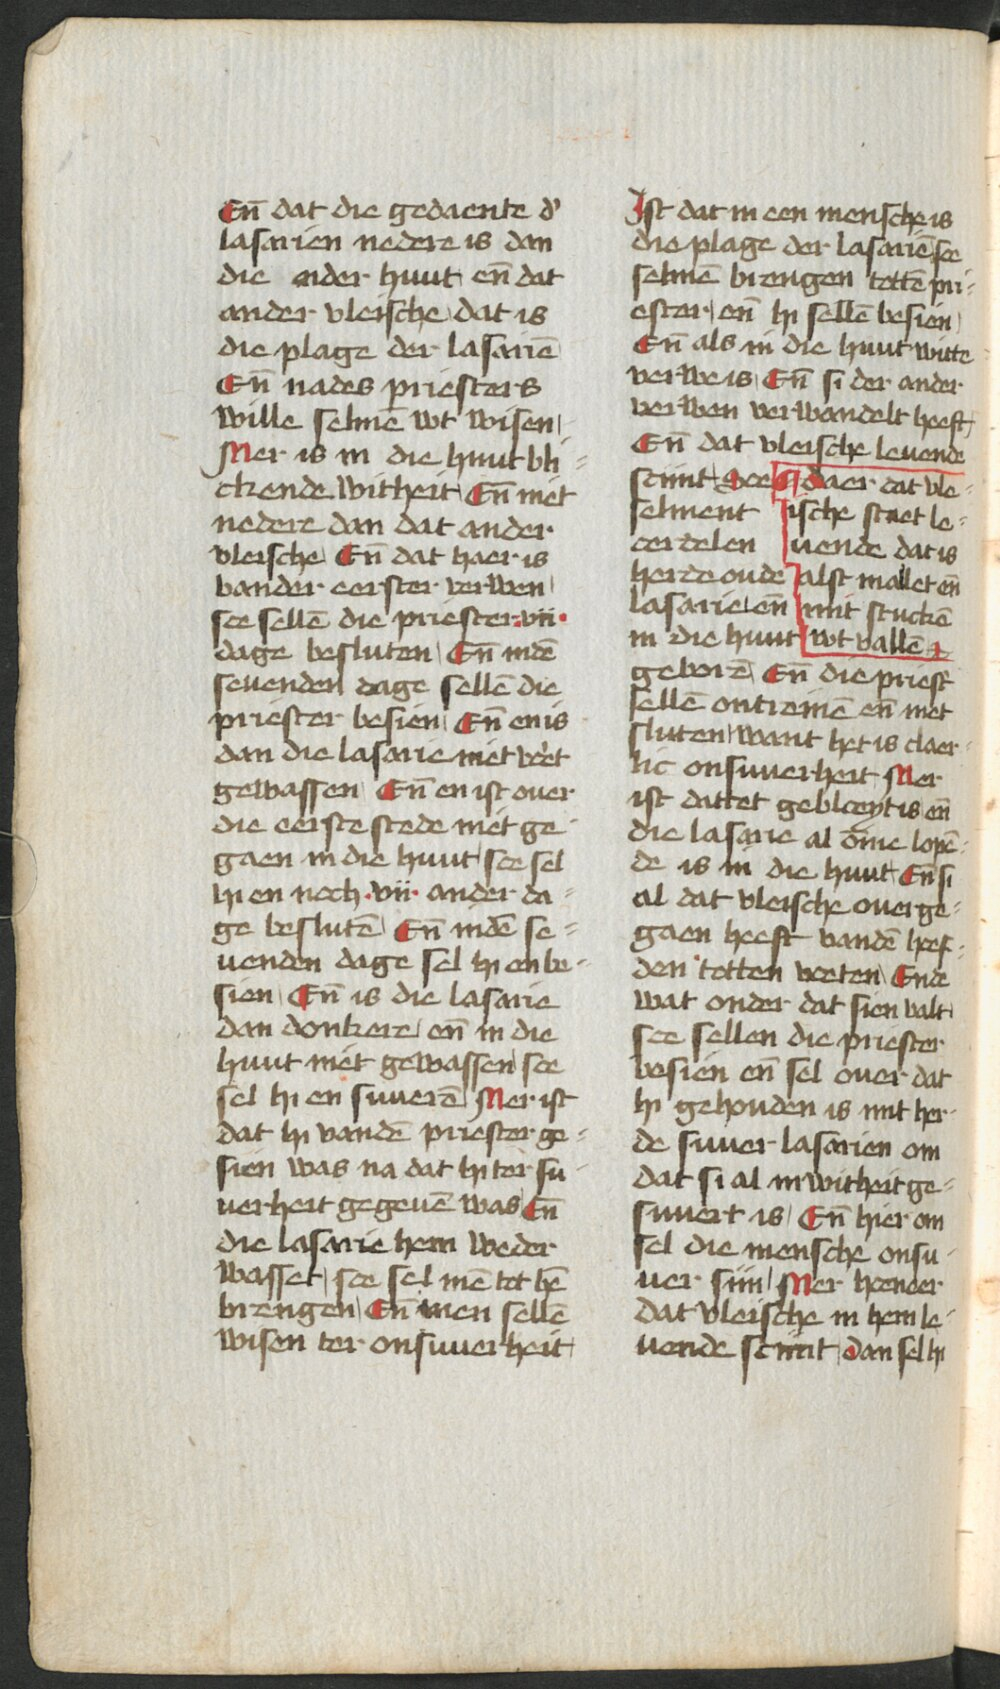 En̄ dat die gedaente d'
lasarien nedere is dan
die ander huut en̄ dat
ander vleische dat is
die plage der lasariē
En̄ na des priesters
wille selmē wt wisen
Mer is in die huut bli=
ckende witheit En̄ niet
nedere dan dat ander
vleische En̄ dat haer is
vander eerster verwen
soe sellē die priester .vii.
dage besluten En̄ indē
seuenden dage sellē die
priester besien En̄ en is
dan die lasarie niet voert
gewassen En̄ en ist ouer
die eerste stede niet ge
gaen in die huut soe sel
hi en noch .vii. ander da=
ge beslutē En̄ indē se=
uenden dage sel hi en be=
sien En̄ is die lasarie
dan donkere en̄ in die
huut niet gewassen soe
sel hi en suuerē Mer ist
dat hi vandē priester ge=
sien was na dat hi ter su
uerheit gegeuē was En̄
die lasarie hem weder
wasset soe sel mē tot hē
brengen En̄ men sellē
wisen ter onsuuerheit
Ist dat in een mensche is
die plage der lasariē soe
selmē brengen tottē pri=
ester en̄ hi sellē besien
En̄ als in die huut witte
verwe is En̄ si der ander
verwen verwandelt heeft
En̄ dat vleische leuende
sciint Soe
selment
oerdelen
herde oude
lasarie en̄
in die huut
daer dat vle=
ische staet le=
uende dat is
alst mallet en̄
mit stuckē
wt vallē
geborē En̄ die priest'
sellē ontreinē en̄ niet
sluten want het is claer
lic onsuuerheit Mer
ist dattet gebloeyt is en̄
die lasarie al ōme lopē=
de is in die huut En̄ si
al dat vleische ouerge=
gaen heeft vandē hoef=
den totten voeten Ende
wat onder dat sien valt
soe sellen die priester
besien en̄ sel ouer dat
hi gehouden is mit her
de suuer lasarien om
dat si al in witheit ge=
suuert is En̄ hier om
sel die mensche onsu
uer siin Mer
dat vleische in hem le=
uende sciint dan sel hi